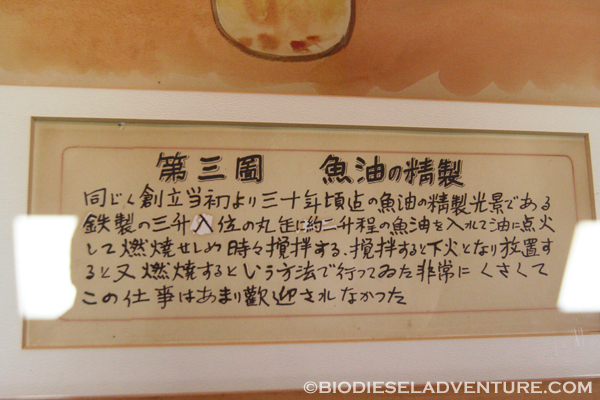 第三圖 魚油の精製
同じく創立当初より三十年頃迄の魚油の精製光景である
鉄製の三升入位の丸缶に約二升程の魚油を入れて油に点火
して燃焼せしめ時々攪拌する、攪拌すると下火となり放置す
ると又燃焼するという方法で行ってゐた非常にくさくて
この仕事はあまり歡迎されなかった
©BIODIESELADVENTURE.COM